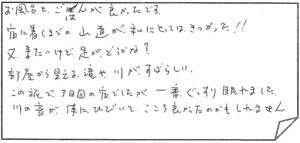 お風呂と、ごはんが良かったです。
宿に着くまでの山道が、私にとてはきつかった!!
又、来たいけど足がどうかな?
部屋から見える滝や川がすばらしい。
この旅で3日目の宿でしたが一番ぐっすり眠れました。
川の音が体にひびいて、こころ良かったのかもしれません